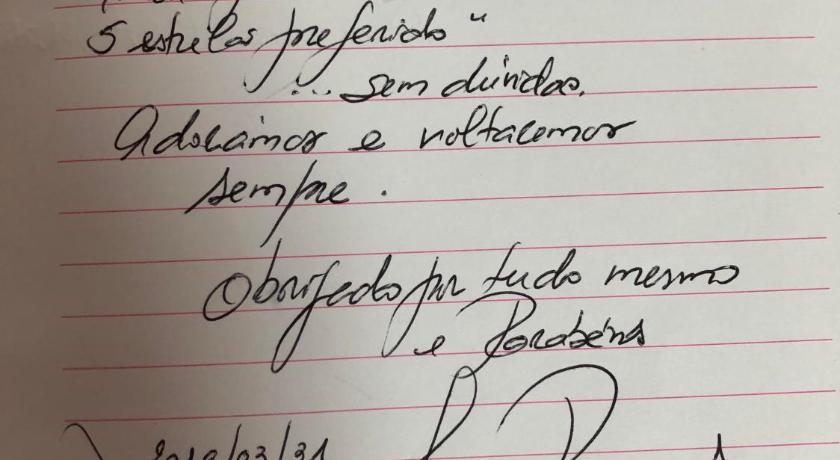 5 estrelas preferido"
... sem dúvidas.
Adorámos e voltaremos
sempre.
Obrigado por tudo mesmo
e Parabéns